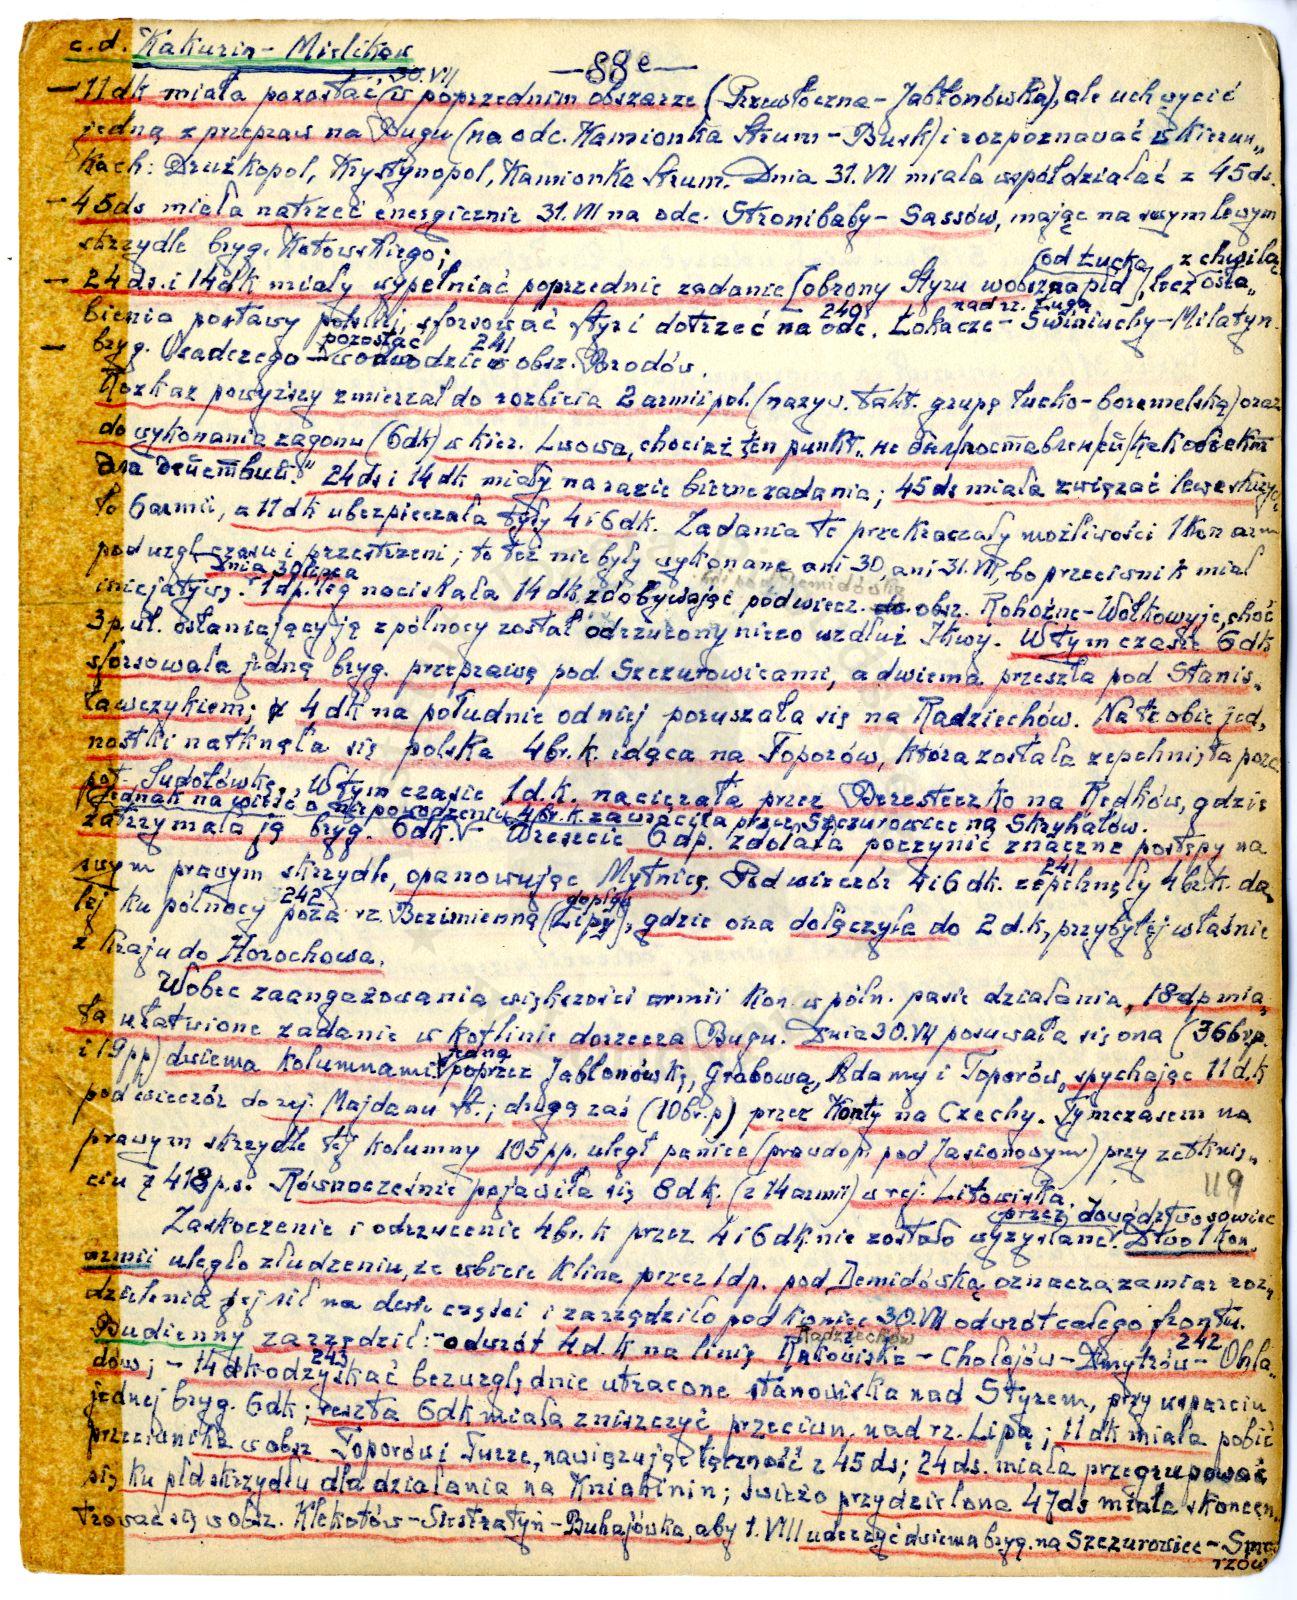 c.d. Kakurin – Mielikow
— 88e —
— 11 dk miała pozostać 30.VII w poprzednim obszarze (Przewłoczna – Jabłonówka), ale uchwycić
jedną z przepraw na Bugu (na odc. Kamionka Strum – Busk) i rozpoznawać w kierun„
kach: Drużkopol, Krystynopol, Kamionka Strum. Dnia 31.VII miała współdziałać z 45ds.
– 45ds miała natrzeć energicznie 31.VII na odc. Stronibaby – Sassów, mając na swym lewym
skrzydle bryg. Kotowskiego;
– 24 ds. i 14 dk miały wypełniać poprzednie zadanie [obrony Styru wobszną płd od Łucka], lecz z chwilą osła„
bienia postawy polskiej, sforsować Styr i dotrzeć na odc. 240 Łokacze – nad rz. Ługą Świniuchy – Milatyn.
– bryg. Osadczego pozostać w odwodzie 241 w obsz. Brodów.
Rozkaz powyższy zmierzał do rozbicia 2 armii pol. (nazyw. takt. grupę łucko-boremelską) oraz
do wykonania zagonu (6dk) w kier. Lwowa, chociaż ten punkt „не был
для действий." 24 ds i 14 dk miały na razie bierne zadania; 45 ds miała związać lewe skrzyd
ło 6 armii, a 11 dk ubezpieczała tyły 4 i 6 dk. Zadania te przekraczały możliwości 1 Kon arm
pod wzgl. czasu i przestrzeni; to też nie były wykonane ani 30 ani 31.VII, bo przeciwnik miał
inicjatywę. Dnia 30 lipca 1 dp. leg naciskała 14 dk zdobywając pod wiecz. obsz. Rohożne – Wołkowyje, choć
3 p.uł. osłaniający ją z północy został odrzucony nieco wzdłuż Ikwy. W tym czasie 6 dk
sforsowała jedną bryg. przeprawę pod Szczurowicami, a dwiema przeszła pod Stanis„
ławczykiem; 4 dk na południe od niej poruszała się na Radziechów. Na te obie jed„
nostki natknęła się polska 4 br. k. idąca na Toporów, która została zepchnięta poza
pot. Sudołówkę. W tym czasie 1 d.k. nacierała przez Beresteczko na Redków, gdzie
Jednak na wieść o niepowodzeniu 4 br. k. zawróciła przez Szczurowice na Skryhałów.
zatrzymała ją bryg. 6dk. Wreszcie 6 dp. zdołała poczynić znaczne postępy na
swym prawym skrzydle, opanowując Mytnicę. Pod wieczór 4 i 6 dk. 241 zepchnęły 4 br.k. da
lej ku północy 242 poza rz. Bezimienną (dopływ Lipy), gdzie ona dołączyła do 2 d.k, przybyłej właśnie
z kraju do Horochowa.
Wobec zaangażowania większości armii Kon. w półn. pasie działania, 18 dp mia„
ła ułatwione zadanie w kotlinie dorzecza Bugu. Dnia 30.VII posuwała się ona (36 br.p.
i 19 pp) dwiema kolumnami: jedną poprzez Jabłonówkę, Grabową, Adamy i Toporów, spychając 11 d.k
pod wieczór do rej. Majdanu St.; drugą zaś (10 br.p) przez Konty na Czechy. Tymczasem na
prawym skrzydle tej kolumny 105 pp. uległ panice (prawdop. pod Jasionowym) przy zetknię„
ciu z 418 p.s. Równocześnie pojawiła się 8 d k. (z 14 armii) w rej. Litowiska.
119
Zaskoczenie i odrzucenie 4 br. k przez 4 i 6 dk. nie zostało wyzyskane przez dowództwo sowiec. D-wo 1 Kon.
armii uległo złudzeniu, że wbicie klina przez 1 dp. pod Demidówką oznacza zamiar roz„
dzielenia jej sił na dwie części i zarządziło pod koniec 30.VII odwrót całego frontu.
Budienny zarządził: – odwrót 4 d.k na linię Radziechów – Chołojów – Dmytrów – 242 Ohla„
dów; – 14 dk 243 odzyskać bezwzględnie utracone stanowiska nad Styrem, przy wsparciu
jednej bryg. 6dk; reszta 6dk miała zniszczyć przeciwn. nad rz. Lipą; 11 dk miała pobić
przeciwnika w obsz. Toporów i Turze, nawiązując łączność z 45 ds; 24 ds. miała przegrupować
się ku płd skrzydłu dla działania na Kniahinin; świeżo przydzielona 47 ds miała skoncen„
trować się w obsz. Klekotów – Siestratyń – Buhajówka, aby 1.VIII uderzyć dwiema bryg. na Szczurowice – Smo
rzów